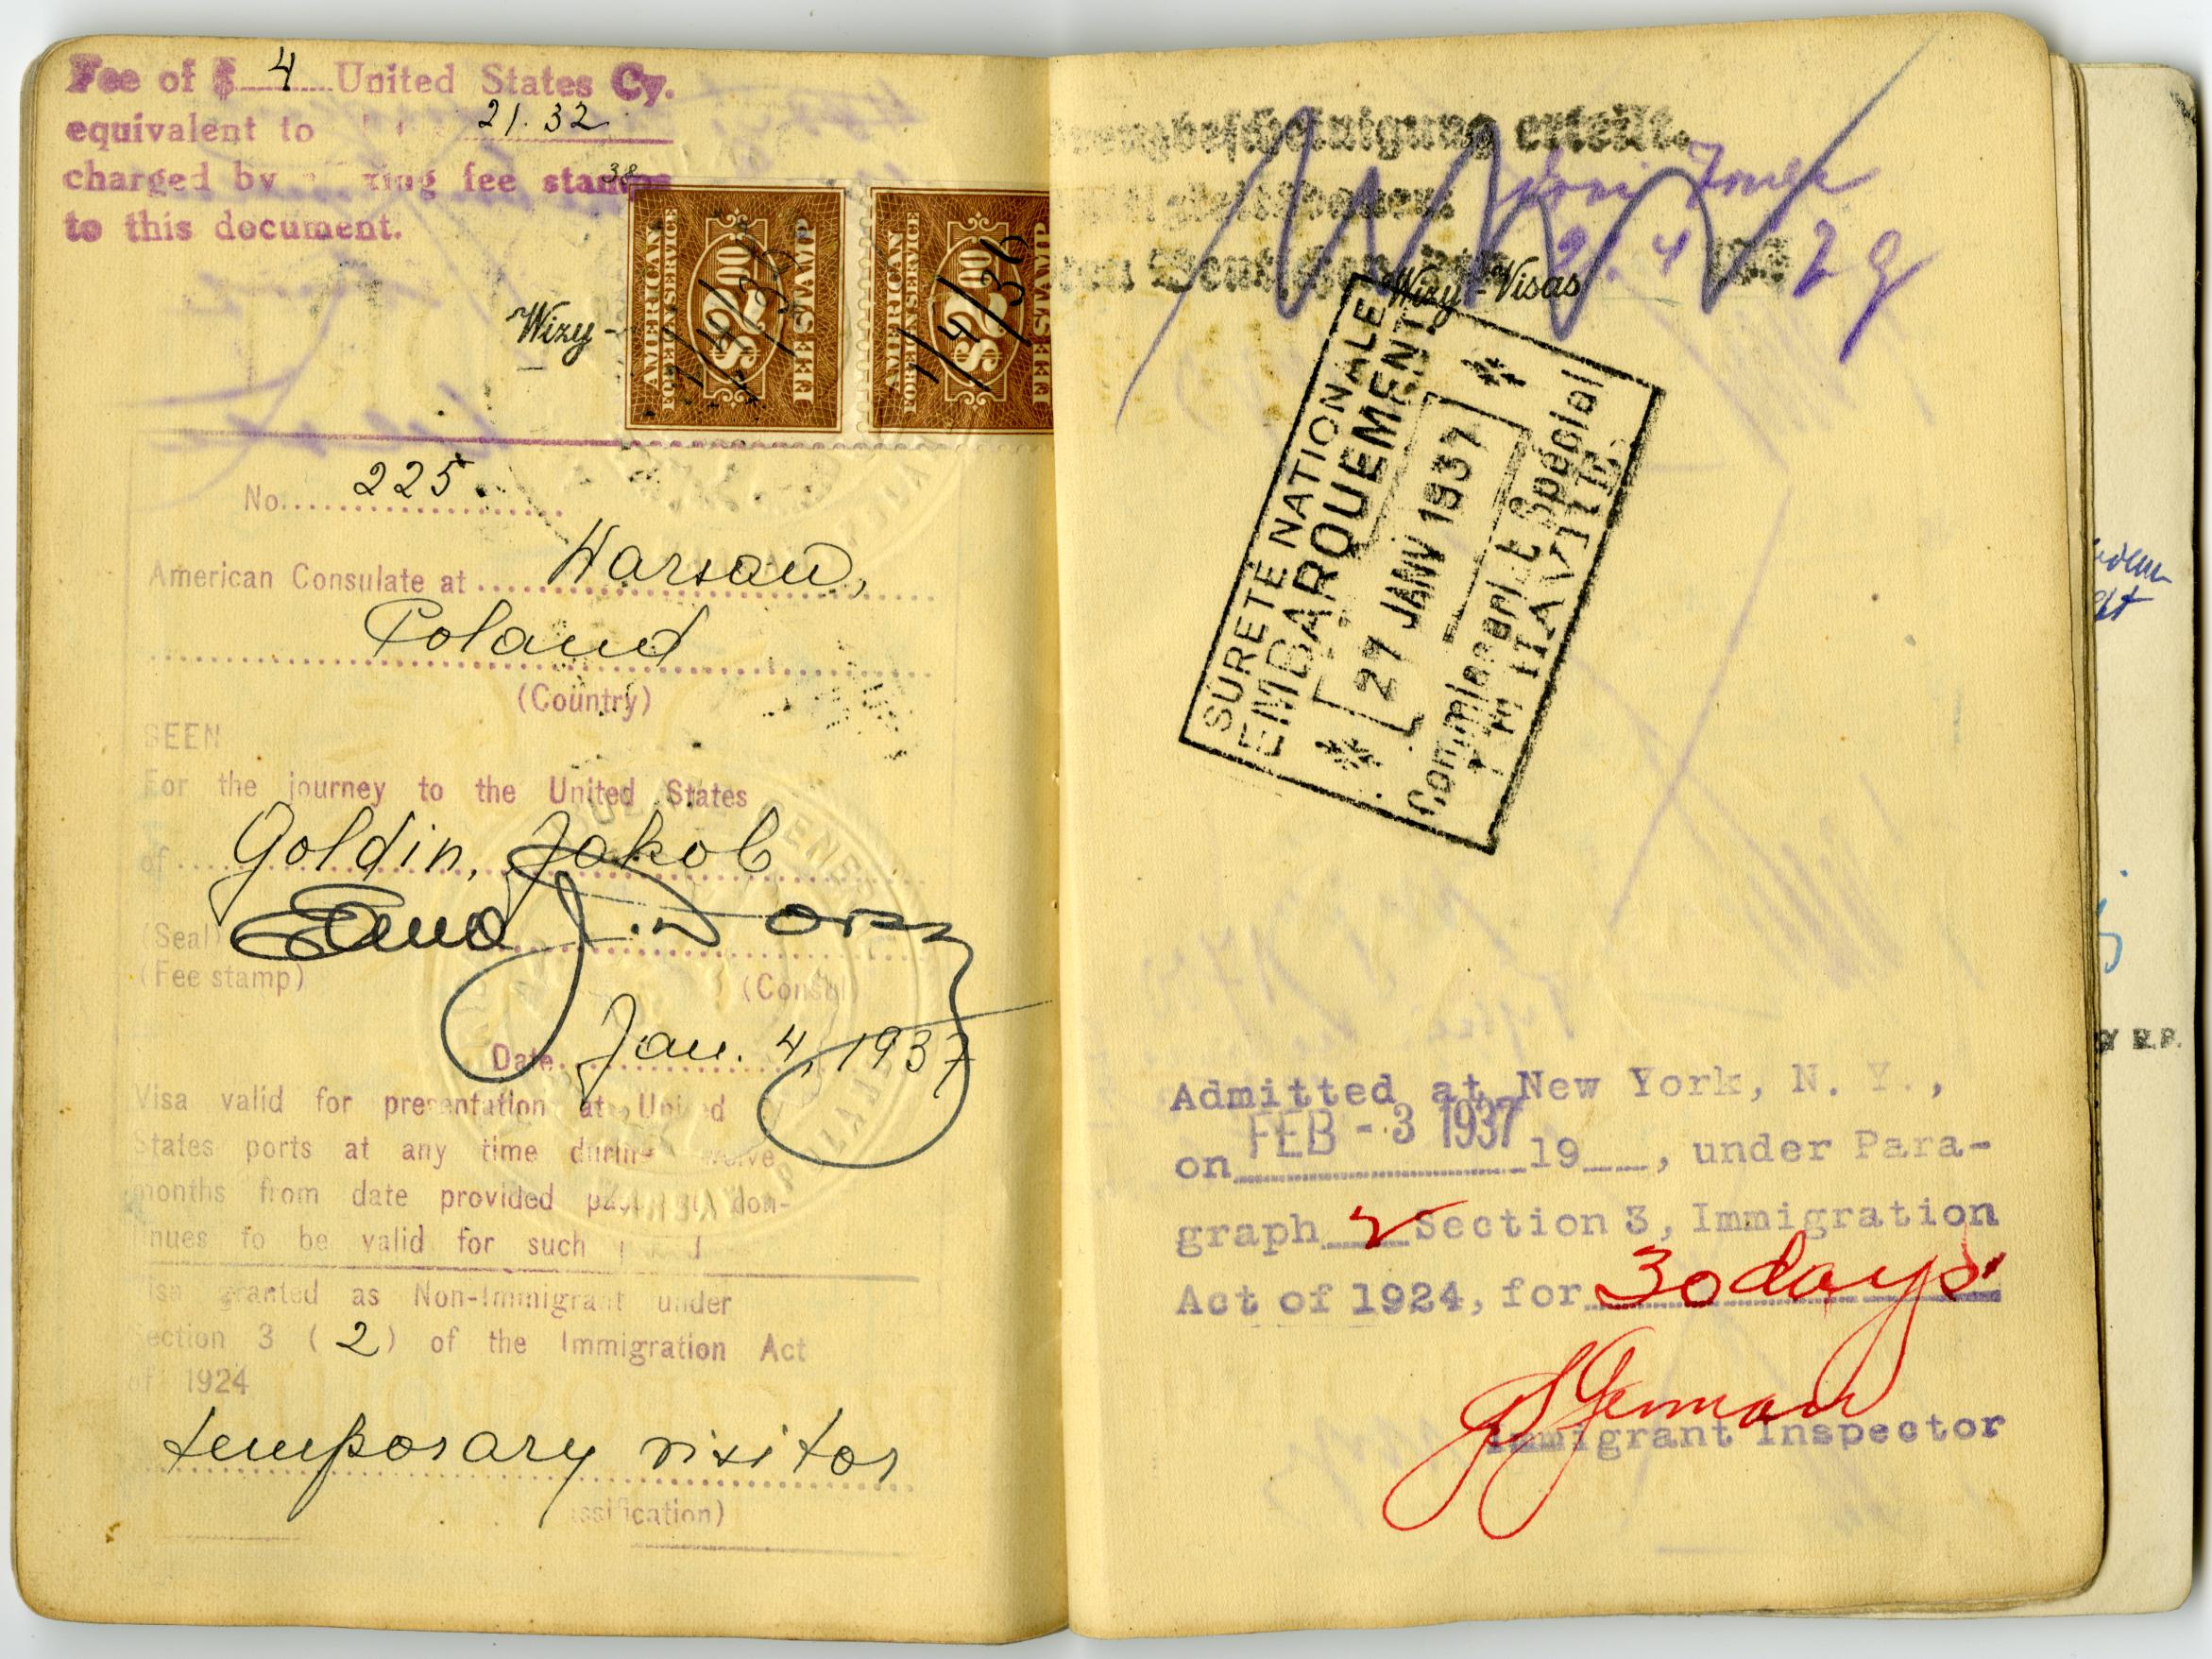 Fee of $ 4 United States Cy.
equivalent to 21.32
charged by fee stamps
to this document.
38
AMERICAN
FOREIGN SERVICE
$2.00
FEE STAMP
1/4/37
AMERICAN
FOREIGN SERVICE
$2.00
FEE STAMP
1/4/37
Wizy -
No. 225.
American Consulate at Warsaw,
Poland
(Country)
SEEN
For the journey to the United States
of Goldin, Jakob
(Seal)
(Fee stamp)
(Consul)
Date Jan. 4, 1937
Visa valid for presentation at United
States ports at any time during twelve
months from date provided con-
nues to be valid for such
isa granted as Non-Immigrant under
ection 3 (2) of the Immigration Act
of 1924
temporary visitor
ssification)
erteilt.
29
Wizy - Visas
SURETE NATIONALE
EMBARQUEMENT
27 JANV 1937
Commissariat Spécial
HAVRE
Admitted at New York, N. Y.,
on FEB - 3 1937 19__, under Para-
graph 2 Section 3, Immigration
Act of 1924, for 30 days.
Immigrant Inspector